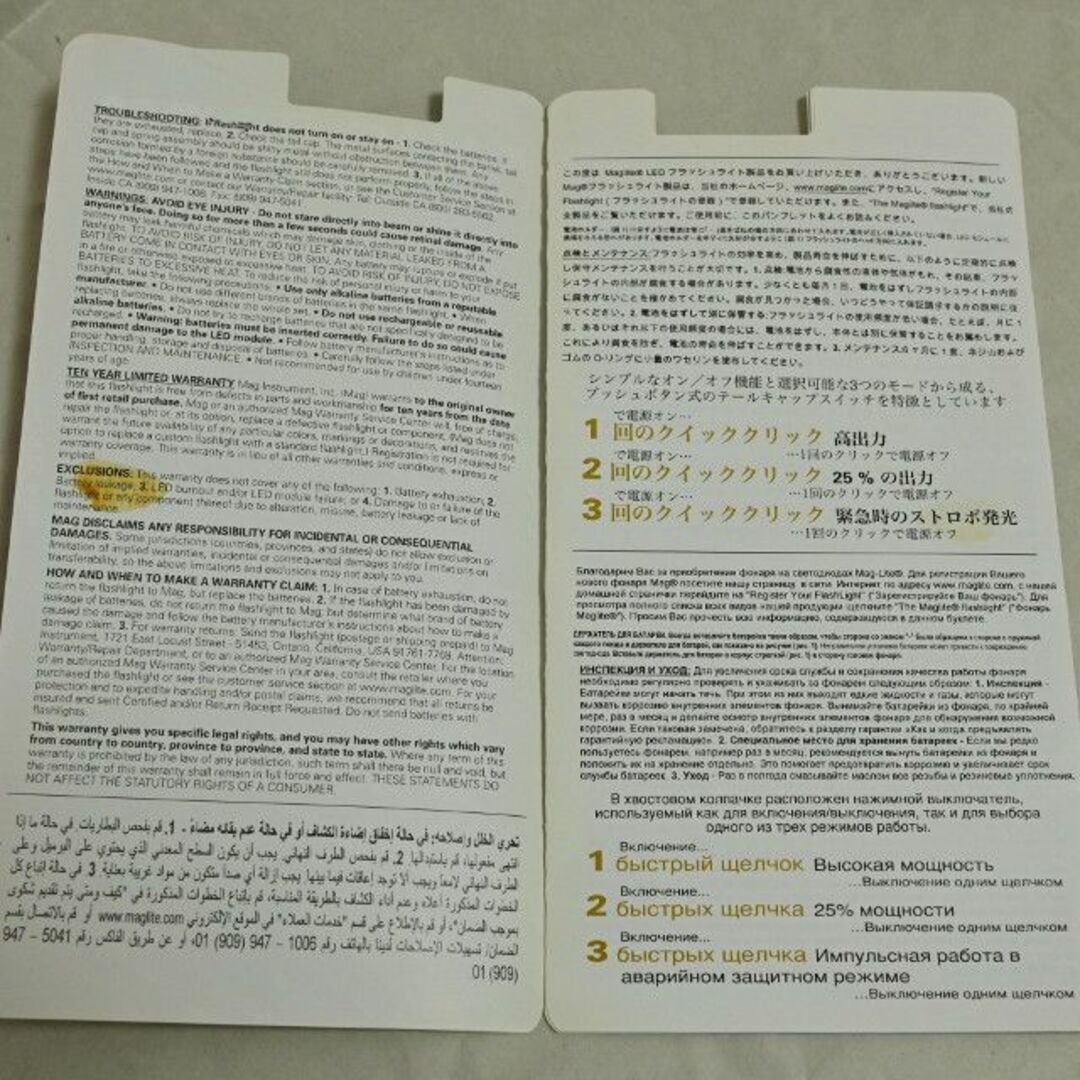 TROUBLESHOOTING: If flashlight does not turn on or stay on - 1. Check the batteries. If
they are exhausted, replace. 2. Check the tail cap. The metal surfaces contacting the barrel, tail
cap and spring assembly should be shiny metal without obstruction between them. Any
corrosion formed by a foreign substance should be carefully removed. 3. If all of the above
steps have been followed and the flashlight still does not perform properly, follow the steps in
the How and When to Make A Warranty Claim section, or see the Customer Service Section at
www.maglite.com or contact our Warranty/Repair facility: Tel: Outside CA (800) 283-5562
Inside CA (909) 947-1006, Fax: (909) 947-5041
WARNINGS: AVOID EYE INJURY - Do not stare directly into beam or shine it directly into
anyone's face. Doing so for more than a few seconds could cause retinal damage. Any
battery may leak harmful chemicals which may damage skin, clothing or the inside of the
flashlight. TO AVOID RISK OF INJURY, DO NOT LET ANY MATERIAL LEAKED FROM A
BATTERY COME IN CONTACT WITH EYES OR SKIN. Any battery may rupture or explode if put
in a fire or otherwise exposed to excessive heat. TO AVOID RISK OF INJURY, DO NOT EXPOSE
BATTERIES TO EXCESSIVE HEAT. To reduce the risk of personal injury or harm to your
flashlight, take the following precautions: • Use only alkaline batteries from a reputable
manufacturer. • Do not use different brands of batteries in the same flashlight. • When
replacing batteries, always replace the whole set. • Do not use rechargeable or reusable
alkaline batteries. • Do not try to recharge batteries that are not specifically designed to be
recharged. • Warning: batteries must be inserted correctly. Failure to do so could cause
permanent damage to the LED module. • Follow battery manufacturer's instructions as to
proper handling, storage and disposal of batteries. • Carefully follow the steps listed under
INSPECTION AND MAINTENANCE. • Not recommended for use by children under fourteen
years of age.
TEN YEAR LIMITED WARRANTY Mag Instrument, Inc. (Mag) warrants to the original owner
that this flashlight is free from defects in parts and workmanship for ten years from the date
of first retail purchase. Mag or an authorized Mag Warranty Service Center will, free of charge,
repair the flashlight or, at its option, replace a defective flashlight or component. (Mag does not
warrant the future availability of any particular colors, markings or decorations, and reserves the
option to replace a custom flashlight with a standard flashlight.) Registration is not required for
warranty coverage. This warranty is in lieu of all other warranties and conditions, express or
implied.
EXCLUSIONS: This warranty does not cover any of the following: 1. Battery exhaustion; 2.
Battery leakage; 3. LED burnout and/or LED module failure; or 4. Damage to or failure of the
flashlight or any component thereof due to alteration, misuse, battery leakage or lack of
maintenance.
MAG DISCLAIMS ANY RESPONSIBILITY FOR INCIDENTAL OR CONSEQUENTIAL
DAMAGES. Some jurisdictions (countries, provinces, and states) do not allow exclusion or
limitation of implied warranties, incidental or consequential damages and/or limitations on
transferability, so the above limitations and exclusions may not apply to you.
HOW AND WHEN TO MAKE A WARRANTY CLAIM: 1. In case of battery exhaustion, do not
return the flashlight to Mag, but replace the batteries. 2. If the flashlight has been damaged by
leakage of batteries, do not return the flashlight to Mag, but determine what brand of battery
caused the damage and follow the battery manufacturer's instructions about how to make a
damage claim. 3. For warranty returns: Send the flashlight (postage or shipping prepaid) to Mag
Instrument, 1721 East Locust Street - 51453, Ontario, California, USA 91761-7769, Attention:
Warranty/Repair Department, or to an authorized Mag Warranty Service Center. For the location
of an authorized Mag Warranty Service Center in your area, consult the retailer where you
purchased the flashlight or see the customer service section at www.maglite.com. For your
protection and to expedite handling and/or postal claims, we recommend that all returns be
insured and sent Certified and/or Return Receipt Requested. Do not send batteries with
flashlights.
This warranty gives you specific legal rights, and you may have other rights which vary
from country to country, province to province, and state to state. Where any term of this
warranty is prohibited by the law of any jurisdiction, such term shall there be null and void, but
the remainder of this warranty shall remain in full force and effect. THESE STATEMENTS DO
NOT AFFECT THE STATUTORY RIGHTS OF A CONSUMER.
تحري الخلل وإصلاحه: في حالة إخفاق إضاءة الكشاف أو في حالة عدم بقائه مضاءً - 1. قم بفحص البطاريات. في حالة ما إذا
انتهى مفعولها، قم باستبدالها. 2. قم بفحص الطرف النهائي. يجب أن يكون السطح المعدني الذي يحتوي على البرميل وعلى
الطرف النهائي لامعاً ويجب ألا توجد أعاقات فيما بينها. يجب إزالة أي صدأ متكون من مواد غريبة بعناية. 3. في حالة إتباع كل
الخطوات المذكورة أعلاه وعدم أداء الكشاف بالطريقة المناسبة، قم بإتباع الخطوات المذكورة في "كيف ومتى يتم تقديم شكوى
بموجب الضمان"، أو قم بالاطلاع على قسم "خدمات العملاء" في الموقع الإلكتروني www.maglite.com أو قم بالاتصال بقسم
الضمان/ تسهيلات الإصلاحات لدينا بالهاتف رقم 1006 – 947 (909) 01، أو عن طريق الفاكس رقم 5041 – 947
(909) 01
この度は Maglite® LED フラッシュライト製品をお買い上げいただき、ありがとうございます。新しい
Mag®フラッシュライト製品は、当社のホームページ、www.maglite.comにアクセスし、"Register Your
Flashlight (フラッシュライトの登録)"で登録していただけます。また、"The Maglite® flashlight"で、当社の
全製品をご覧いただけます。ご使用前に、このパンフレットをよくお読みください。
点検とメンテナンス フラッシュライトの効率を高め、製品寿命を伸ばすために、以下のように定期的に点検
し保守メンテナンスを行うことが大切です。1. 点検:電池から腐食性の液体や気体がもれ、その結果、フラッ
シュライトの内部が腐食する場合があります。少なくとも毎月1回、電池をはずしフラッシュライトの内部
に腐食がないことを確かめてください。腐食が見つかった場合、いつどうやって保証請求するかの説明に従
ってください。2. 電池をはずして別に保管する:フラッシュライトの使用頻度が低い場合、たとえば、月に1
度、あるいはそれ以下の使用頻度の場合には、電池をはずし、本体とは別に保管することをお薦めします。
これにより腐食を防ぎ、電池の寿命を伸ばすことができます。3. メンテナンス:6ヶ月に1度、ネジ山および
ゴムの O-リングに少量のワセリンを塗布してください。
シンプルなオン／オフ機能と選択可能な3つのモードから成る、
プッシュボタン式のテールキャップスイッチを特徴としています
で電源オン…
1 回のクイッククリック 高出力
で電源オン… …1回のクリックで電源オフ
2 回のクイッククリック 25 % の出力
で電源オン… …1回のクリックで電源オフ
3 回のクイッククリック 緊急時のストロボ発光
…1回のクリックで電源オフ
Благодарим Вас за приобретение фонаря на светодиодах Mag-Lite®. Для регистрации Вашего
нового фонаря Mag® посетите нашу страницу в сети Интернет по адресу www.maglite.com, с нашей
домашней странички перейдите на "Register Your FlashLight" ("Зарегистрируйте Ваш фонарь"). Для
просмотра полного списка всех видов нашей продукции щелкните "The Maglite® flashlight" ("Фонарь
Maglite®"). Просим Вас прочесть всю информацию, содержащуюся в данном буклете.
ИНСПЕКЦИЯ И УХОД: Для увеличения срока службы и сохранения качества работы фонаря
необходимо регулярно проверять и ухаживать за фонарем следующим образом: 1. Инспекция -
Батарейки могут начать течь. При этом из них выходят едкие жидкости и газы, которые могут
вызвать коррозию внутренних элементов фонаря. Вынимайте батарейки из фонаря, по крайней
мере, раз в месяц и делайте осмотр внутренних элементов фонаря для обнаружения возможной
коррозии. Если таковая замечена, обратитесь к разделу гарантии «Как и когда предъявлять
гарантийную рекламацию». 2. Специальное место для хранения батареек - Если вы редко
пользуетесь фонарем, например раз в месяц, рекомендуется вынуть батарейки из фонаря и
положить их на хранение отдельно. Это помогает предотвратить коррозию и увеличивает срок
службы батареек. 3. Уход - Раз в полгода смазывайте маслом все резьбы и резиновые уплотнения.
В хвостовом колпачке расположен нажимной выключатель,
используемый как для включения/выключения, так и для выбора
одного из трех режимов работы.
Включение...
1 быстрый щелчок Высокая мощность
...Выключение одним щелчком
Включение...
2 быстрых щелчка 25% мощности
...Выключение одним щелчком
Включение...
3 быстрых щелчка Импульсная работа в
аварийном защитном режиме
...Выключение одним щелчком